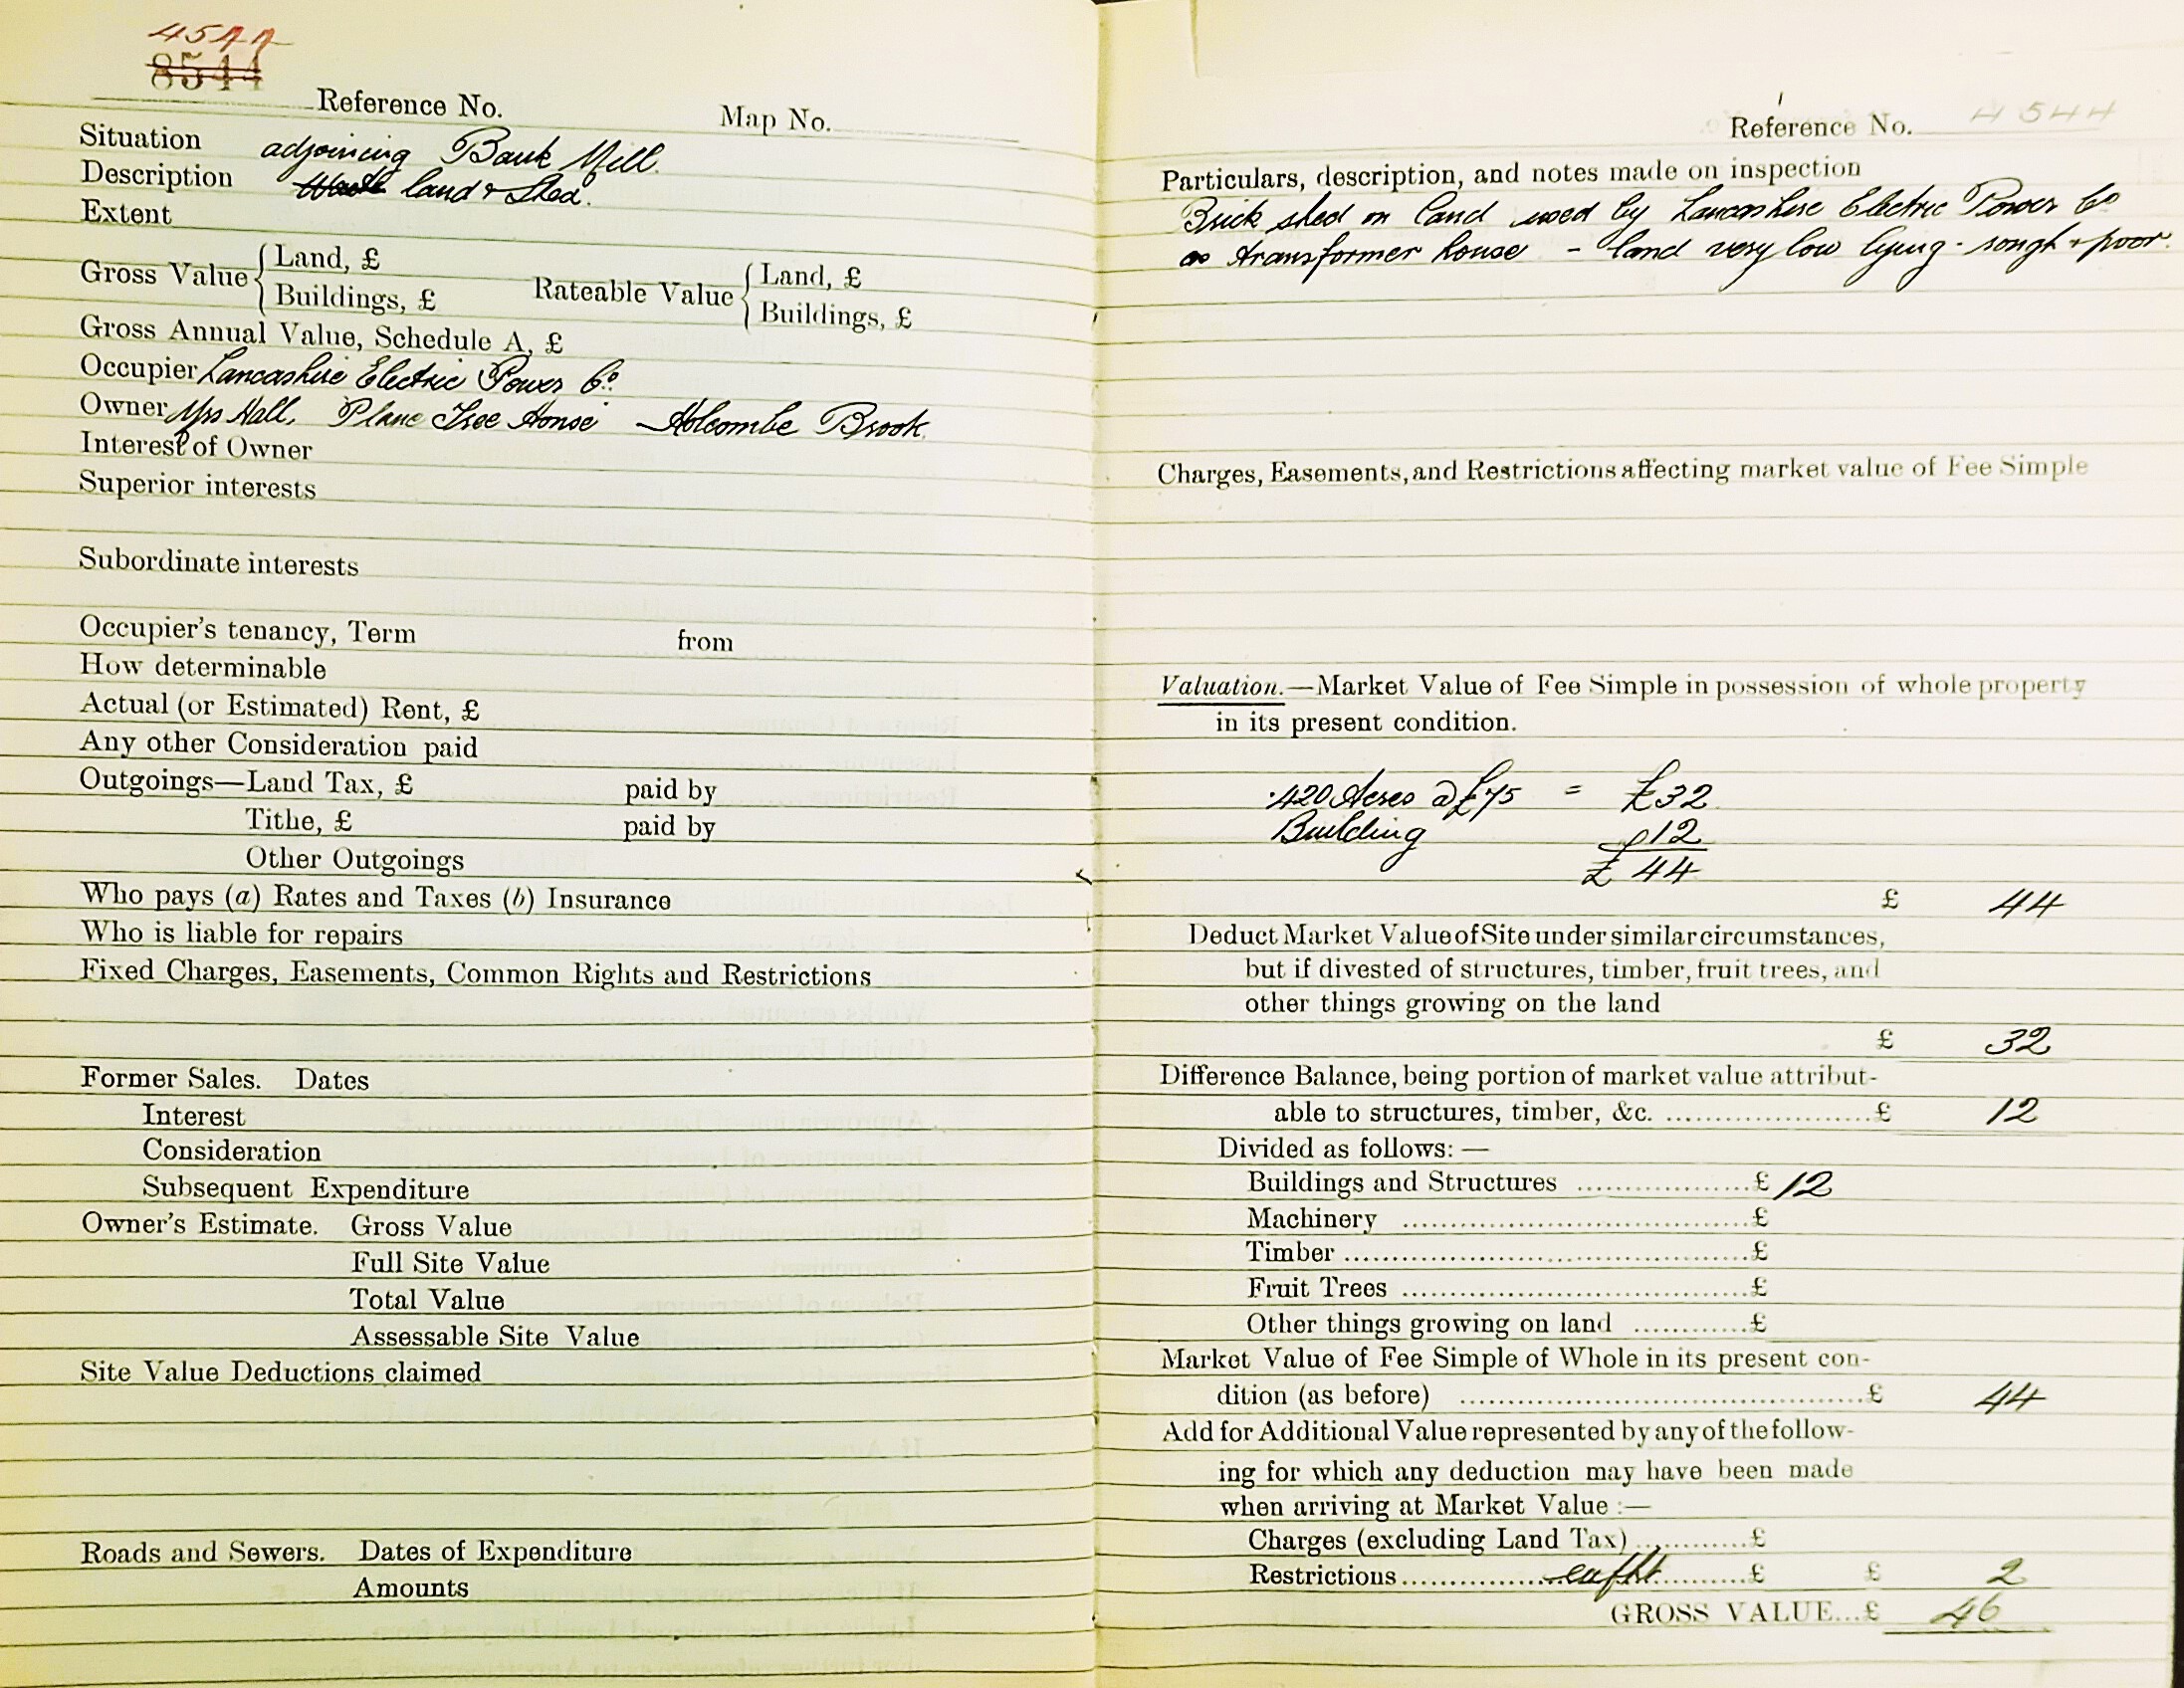 4544
8544
Reference No. Map No.
Situation adjoining Bank Mill.
Description Waste land & Shed.
Extent
Gross Value { Land, £
Buildings, £
Rateable Value { Land, £
Buildings, £
Gross Annual Value, Schedule A, £
Occupier Lancashire Electric Power Co.
Owner Mrs Hall, Plane Tree House Holcombe Brook.
Interest of Owner
Superior interests
Subordinate interests
Occupier's tenancy, Term from
How determinable
Actual (or Estimated) Rent, £
Any other Consideration paid
Outgoings—Land Tax, £ paid by
Tithe, £ paid by
Other Outgoings
Who pays (a) Rates and Taxes (b) Insurance
Who is liable for repairs
Fixed Charges, Easements, Common Rights and Restrictions
Former Sales. Dates
Interest
Consideration
Subsequent Expenditure
Owner's Estimate. Gross Value
Full Site Value
Total Value
Assessable Site Value
Site Value Deductions claimed
Roads and Sewers. Dates of Expenditure
Amounts
Reference No. 4544
Particulars, description, and notes made on inspection
Brick shed on land used by Lancashire Electric Power Co
as transformer house - land very low lying - rough & poor.
Charges, Easements, and Restrictions affecting market value of Fee Simple
Valuation.—Market Value of Fee Simple in possession of whole property
in its present condition.
.420 Acres @ £75 = £32
Building 12
£ 44
£ 44
Deduct Market Value of Site under similar circumstances,
but if divested of structures, timber, fruit trees, and
other things growing on the land
£ 32
Difference Balance, being portion of market value attribut-
able to structures, timber, &c. ....................£ 12
Divided as follows:—
Buildings and Structures ..................£ 12
Machinery ....................................£
Timber..........................................£
Fruit Trees ....................................£
Other things growing on land ............£
Market Value of Fee Simple of Whole in its present con-
dition (as before) ..........................................£ 44
Add for Additional Value represented by any of the follow-
ing for which any deduction may have been made
when arriving at Market Value :—
Charges (excluding Land Tax)............£
Restrictions....................................£ £ 2
GROSS VALUE...£ 46